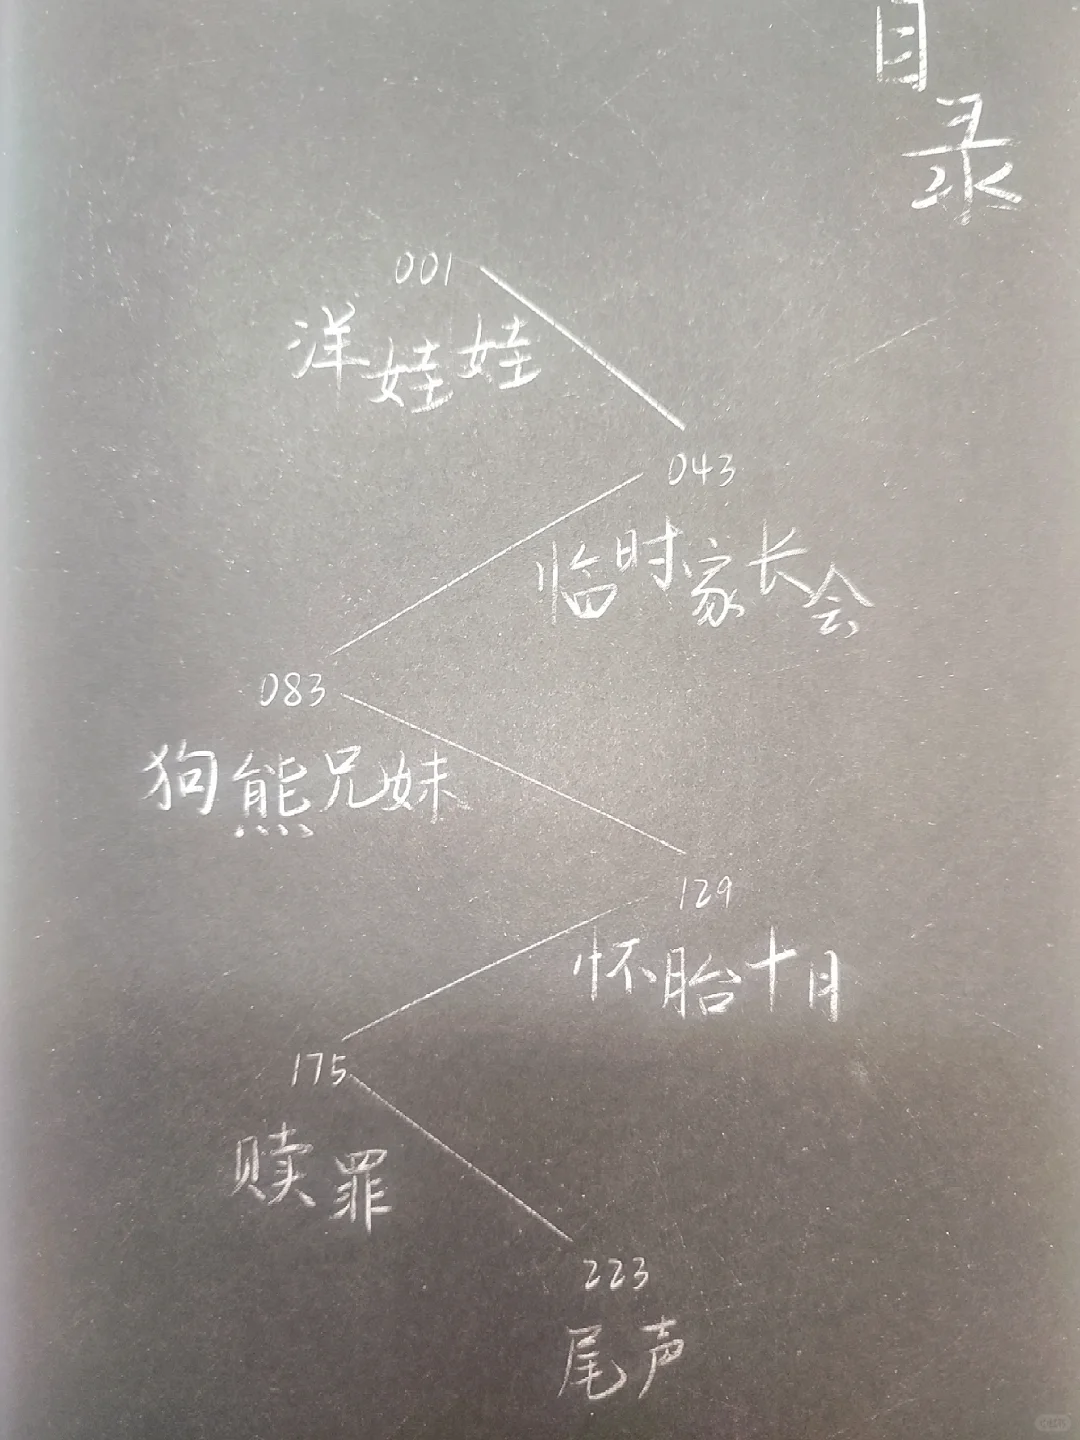 目录
001
洋娃娃
043
临时家长会
083
狗熊兄妹
129
怀胎十月
175
赎罪
223
尾声